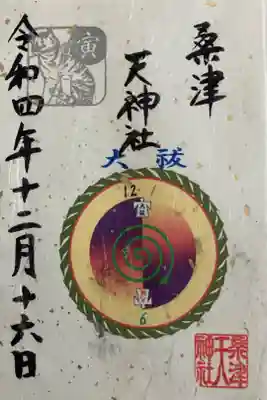 桑津
天神社
大祓
12
6
寅
令和四年十二月十六日
桑津
天神社